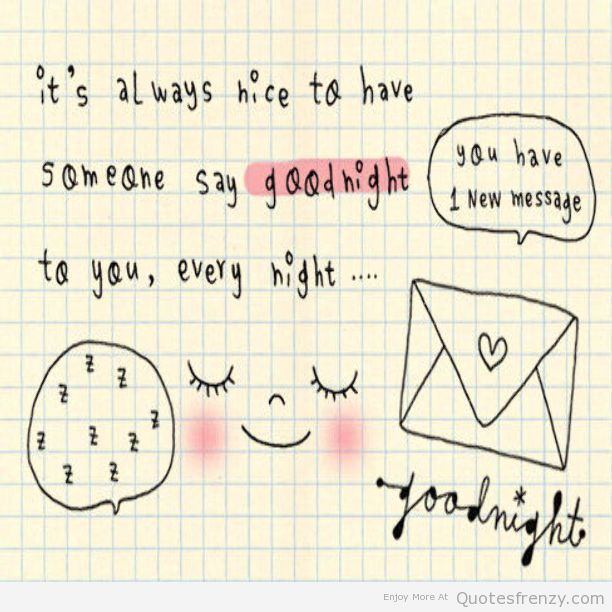 it's always nice to have
someone say goodnight
to you, every night ....
you have
1 new message
z
z
z
z
z
z
z
z
z
goodnight
Enjoy More At Quotesfrenzy.com